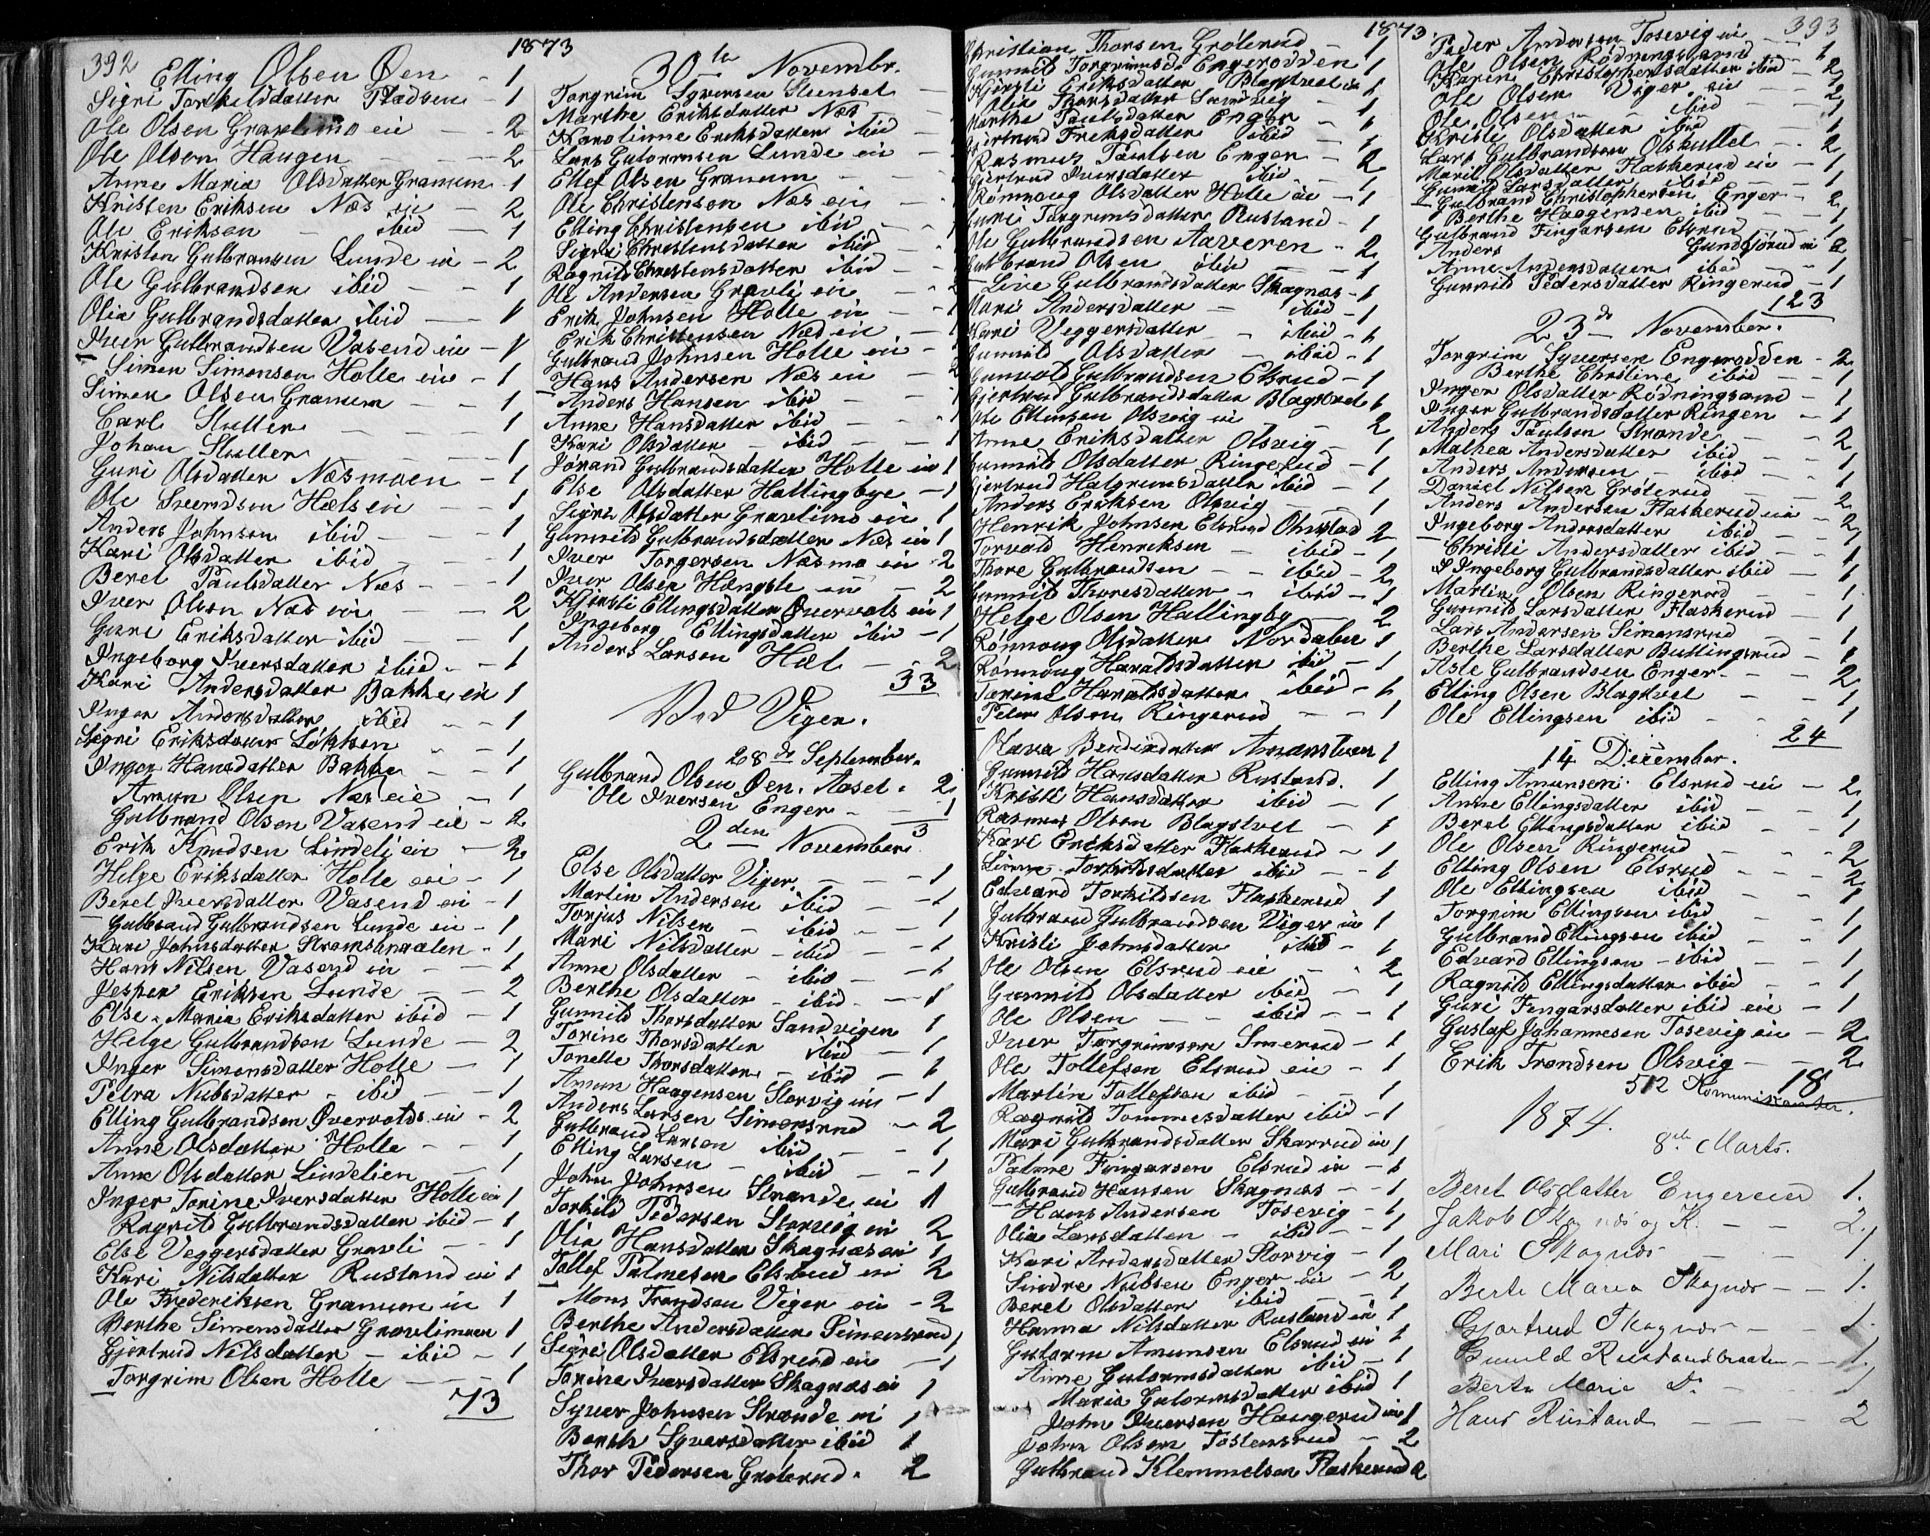 392
1873
Elling Olsen Øen - 1
Sigri Torkildatter Pladsen - 1
Ole Olsen Gravlimo eie - 2
Ole Olsen Haugen - 2
Anne Maria Olsdatter Granum - 1
Kristen Eriksen Næs eie - 2
Ole Eriksen - ibid - 1
Kristen Gulbransen Lunde ei - 2
Ole Gulbrandsen ibid - 1
Olia Gulbrandsdatter ibid - 1
Iver Gulbrandsen Vasend ei - 1
Simen Simensen Holle eie - 1
Simen Olsen Granum - 1
Carl Muller - 1
Johan Muller - 1
Guri Olsdatter Næsmoen - 1
Ole Svendsen Hæls ei - 1
Anders Johnsen ibid - 1
Kari Olsdatter ibid - 1
Beret Paulsdatter Næs - 1
Iver Olsen Næs ei - 2
Guri Eriksdatter ibid - 1
Ingeborg Iversdatter ibid - 1
Kari Andersdatter Bakke ei 1
Inger Andersdatter ibid - 1
Sigri Eriksdatter Løkken - 1
Inger Hansdatter Bakke - 1
Amun Olsen Næs eie - 1
Gulbrand Olsen Vasend eie - 2
Erik Knudsen Lindeli ei - 2
Helge Eriksdatter Holle ei - 1
Beret Iversdatter Vasend ei - 1
Gulbrand Gulbrandsen Lunde ei - 1
Kari Johnsdatter Strømsbraaten - 1
Hans Nilsen Vasend ei - 1
Jesper Eriksen Lunde - 2
Else Maria Eriksdatter ibid - 1
Helge Gulbrandsen Lunde - 2
Inger Simensdatter Holle - 1
Petra Nubsdatter - ibid - 1
Elling Gulbrandsen Øvervolds ei - 2
Anne Olsdatter Holle - 1
Anne Olsdatter Lindelien - 1
Inger Torine Iversdatter Holle ei 1
Ragnild Gulbrandsdatter ibid - 1
Else Veggersdatter Gravli - 1
Kari Nilsdatter Rustand ei 1
Ole Frederiksen Granum ei 1
Berthe Simensdatter Gravlimoen 1
Gjertrud Nilsdatter - ibid - 1
Torgrim Olsen Holle - 1
73
30te Novembr.
Torgrim Syversen Steenset
Marthe Eriksdatter Næs
Karolinne Eriksdatter ibid
Lars Gulormsen Lunde ei
Ellef Olsen Granum
Ole Christensen Næs ei
Elling Christensen ibid
Sigri Christensdatter ibid
Ragnild Christensdatter ibid
Ole Andersen Gravli ei
Erik Johnsen Holle ei
Erik Christensen Næs ei
Gulbrand Johnsen Holle ei
Hans Andersen Næs ei
Anders Hansen ibid
Anne Hansdatter ibid
Kari Olsdatter - ibid - 1
Jørand Gulbrandsdatter Holle ei 1
Else Olsdatter Hallingbye - 1
Sigri Olsdatter Gravlimo ei 1
Gunnild Gulbrandsdatter Næs ei 1
Iver Torgersen Næsmo ei 2
Iver Olsen Hængsle ei - 2
Kjersti Ellingsdatter Øvervols ei 1
Ingeborg Ellingsdatter ibid - 1
Anders Larsen Hæl - 2
33
Ved Viger.
28de September.
Gulbrand Olsen Øen. Aaset. 2
Ole Iversen Enger - 1
3
2den November
Else Olsdatter Viger. - 1
Martin Andersen ibid - 1
Torjus Nilsen - ibid - 1
Mari Nilsdatter - ibid - 1
Anne Olsdatter - ibid - 1
Berthe Olsdatter - ibid - 1
Gunnild Thorsdatter Sandvigen 1
Torine Thorsdatter ibid - 1
Tonette Thorsdatter - ibid - 1
Amun Haagensen Storvig ei - 1
Anders Larsen Simensrud - 2
Gulbrand Larsen ibid - 1
Elling Larsen - ibid - 1
John Johnsen Strande ei 1
Torkild Pedersen Storvig ei 2
Olia Hansdatter Skagnæs ei 1
Tollef Palmesen Elsrud ei 2
Mons Trondsen Viger ei - 2
Berthe Andersdatter Simensrud 1
Sigri Olsdatter Elsrud ei - 1
Torine Iversdatter Skagnæs ei 1
Syver Johnsen Strande ei 1
Berith Syversdatter ibid 1
Thor Pedersen Grøterud. 2
1873
393
Christian Thorsen Grøterud - 1
Gunnild Torgrimsd. Engerodden 1
Kjersti Eriksdatter Blagstvet ei 1
Olia Thorsdatter Sandvig - 1
Marthe Paulsdatter Enger - 1
Gjertrud Freksdatter ibid - 1
Rasmus Paulsen Enger - 2
Gjertrud Iversdatter ibid. - 1
Rønnaug Olsdatter Holle ei - 1
Guri Torgrimsdatter Rustand - 1
Ole Gulbrandsen Aaveren - 2
Gulbrand Olsen ibid - 1
Live Gulbrandsdatter Skagnæs - 1
Mari Andersdatter - ibid - 1
Kari Veggersdatter - ibid - 1
Gunnild Olsdatter - ibid - 1
Gunvold Gulbrandsen Elsrud - 1
Gjertrud Gulbrandsdatter Blagstvet 1
Ole Ellingsen Olsvig ei - 2
Anne Eriksdatter Olsvig - 1
Gunnild Olsdatter Ringerud - 1
Gjertrud Halgrimsdatter ibid - 1
Anders Eriksen Olsvig - 1
Henrik Johnsen Elsrud Ohnstad 2
Torvald Henriksen - ibid - 1
Thore Gulbrandsen - ibid - 2
Gunnild Thoresdatter - ibid - 1
Helge Olsen Hallingby - 2
Rønnaug Olsdatter Nordaber 1
Rønnoug Haraldsdatter ibid - 1
Torine Haraldsdatter ibid - 1
Peter Olsen Ringerud - 1
Olava Bendixdatter Amænstven 1
Gunnild Hansdatter Rustand. 1
Kristi Hansdatter ibid - 1
Rasmus Olsen Blagstvet - 1
Kari Eriksdatter Flaskerud - 1
Linne Torkildsdatter ibid - 1
Edvard Torkildsen Flaskerud 1
Gulbrand Gulbrandsen Viger ei 1
Kristi Johnsdatter ibid - 1
Ole Olsen Elsrud eie - 2
Gunnild Olsdatter ibid - 1
Ole Olsen - ibid - 1
Iver Torgrimsen Smerud - 1
Ole Tollefsen Elsrud eie - 1
Martin Tollefsen ibid - 1
Ragnild Tommesdatter ibid - 1
Mari Gulbrandsdatter Skarrud ei 1
Palme Fingarsen Elsrud ei - 1
Gulbrand Hansen Skagnæs - 1
Hans Andersen Tosevig - 1
Olia Larsdatter - ibid - 1
Kari Andersdatter Storvig - 1
Sindre Nubsen Enger ei - 2
Beret Olsdatter ibid - 1
Hanna Nilsdatter Rustand ei 1
Gulorm Amunsen Elsrud ei 1
Anne Gulormsdatter ibid - 1
Maria Gulormsdatter ibid 1
John Iversen Haugerud ei 1
John Olsen Tostensrud - 2
Gulbrand Klemmetsen Flaskerud 2
Peder Andersen Tosevig ei - 1
Ole Olsen Rødningsand - 2
Karen Christophersdatter ibid - 1
Ole Olsen Viger ei - 2
Ole Olsen - ibid - 1
Kristi Olsdatter ibid - 1
Lars Gulbrandsen Olskuttet - 2
Marit Olsdatter Flaskerud ei - 1
Gunnild Larsdatter ibid - 1
Gulbrand Christophersen Enger - 2
Berthe Haagensen ibid - 1
Gulbrand Fingarsen Elsrud 1
Anders Gundbjørud ei 2
Anne Andersdatter ibid - 1
Gunnild Pedersdatter Ringerud - 1
123
23de November.
Torgrim Syversen Engerodden - 2
Berthe Christine ibid - 1
Inger Olsdatter Rødningsand - 1
Inger Gulbrandsdatter Ringen - 1
Anders Paulsen Strande - 2
Mathea Andersdatter ibid - 1
Anders Andersen - ibid - 1
Daniel Nilsen Grøterud - 1
Anders Andersen Flaskerud ei - 2
Ingeborg Andersdatter ibid - 2
Christi Andersdatter ibid - 1
Ingeborg Gulbrandsdatter ibid - 1
Martin Olsen Ringerud - 1
Gunnild Larsdatter Flaskerud - 1
Lars Andersen Simensrud - 1
Berthe Larsdatter Buttingsrud - 1
Asle Gulbrandsen Enger - 2
Elling Olsen Blagstvet - 1
Ole Ellingsen ibid - 1
24
14 December.
Elling Amunsen Elsrud ei - 2
Anne Ellingsdatter ibid - 1
Beret Ellingsdatter ibid - 1
Ole Olsen Ringerud - 2
Elling Olsen Elsrud - 2
Ole Ellingsen ibid - 1
Torgrim Ellingsen ibid - 1
Gulbrand Ellingsen ibid - 1
Edvard Ellingsen - ibid - 1
Ragnild Ellingsdatter ibid - 1
Guri Fengarsdatter ibid eie - 1
Gustaf Johannesen Tosevig ei - 2
Erik Trondsen Olsvig - 2
18
512 Komunikanter.
1874.
8de Marts.
Beret Olsdatter Engereier 1.
Jakob Skagnæs og K. - 2.
Mari Skagnæs - 1
Berte Maria Skagnæs - 1.
Gjertrud Skagnæs - 1.
Gunild Rustandbraaten - 1.
Berte Marie Do - 1
Hans Rustand - 2